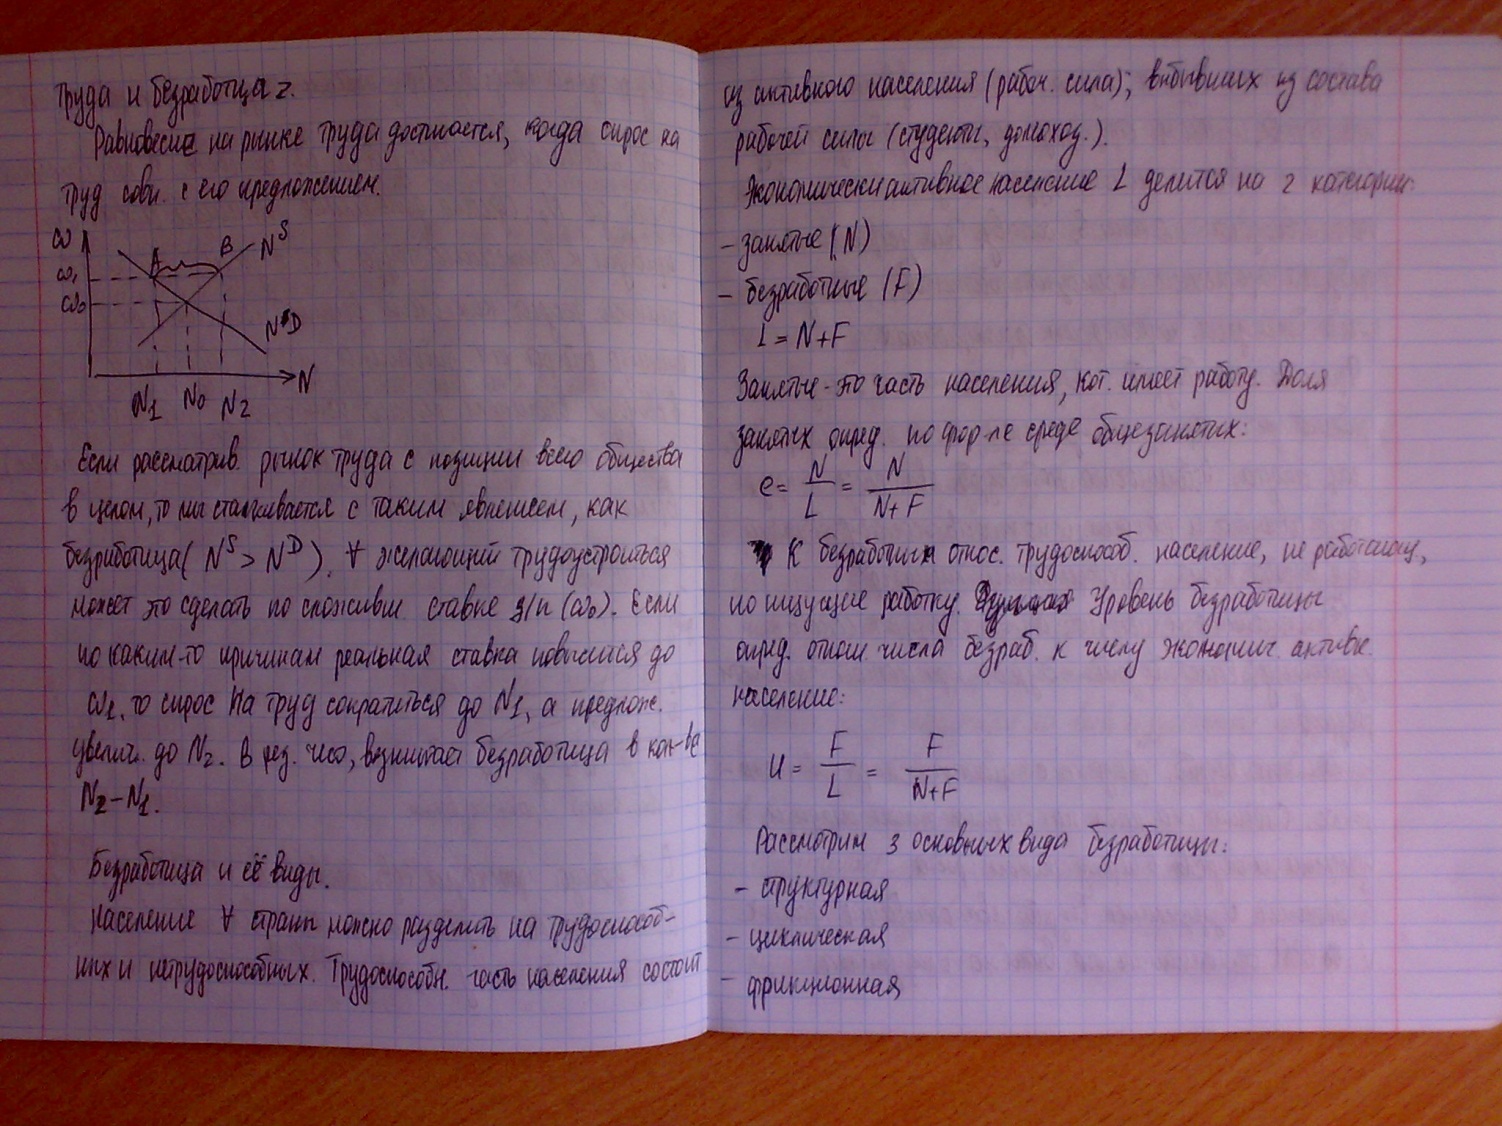 труда и безработица 2.
Равновесие на рынке труда достигается, когда спрос на
труд совп. с его предложением.
ω
A
B
N^S
ω₁
ω₀
N^D
N
N₁ N₀ N₂
Если рассматрив. рынок труда с позиции всего общества
в целом, то мы сталкивается с таким явлением, как
безработица (N^S > N^D). ∀ желающий трудоустроиться
может это сделать по сложивш ставке з/п (ω₀). Если
по каким-то причинам реальная ставка повысится до
ω₁, то спрос на труд сократиться до N₁, а предлож.
увелич. до N₂. В рез. чего, возникает безработица в кол-ве
N₂ – N₁.
Безработица и её виды.
Население ∀ страны можно разделить на трудоспособ-
ных и нетрудоспособных. Трудоспособн. часть населения состоит
из активного населения (рабоч. сила); выбывших из состава
рабочей силы (студенты, домохоз.).
Экономически активное население L делится на 2 категории:
– занятые (N)
– безработные (F)
L = N + F
Занятые - это часть населения, кот. имеет работу. Доля
занятых опред. по фор-ле среде общезанятых:
e = N/L = N/(N+F)
К безработным относ. трудоспособ. население, не работающ,
но ищущие работку. Уровень безработицы
опред. отнош. числа безраб. к числу экономич. активн.
население:
u = F/L = F/(N+F)
Рассмотрим 3 основных вида безработицы:
– структурная
– циклическая
– фрикционная